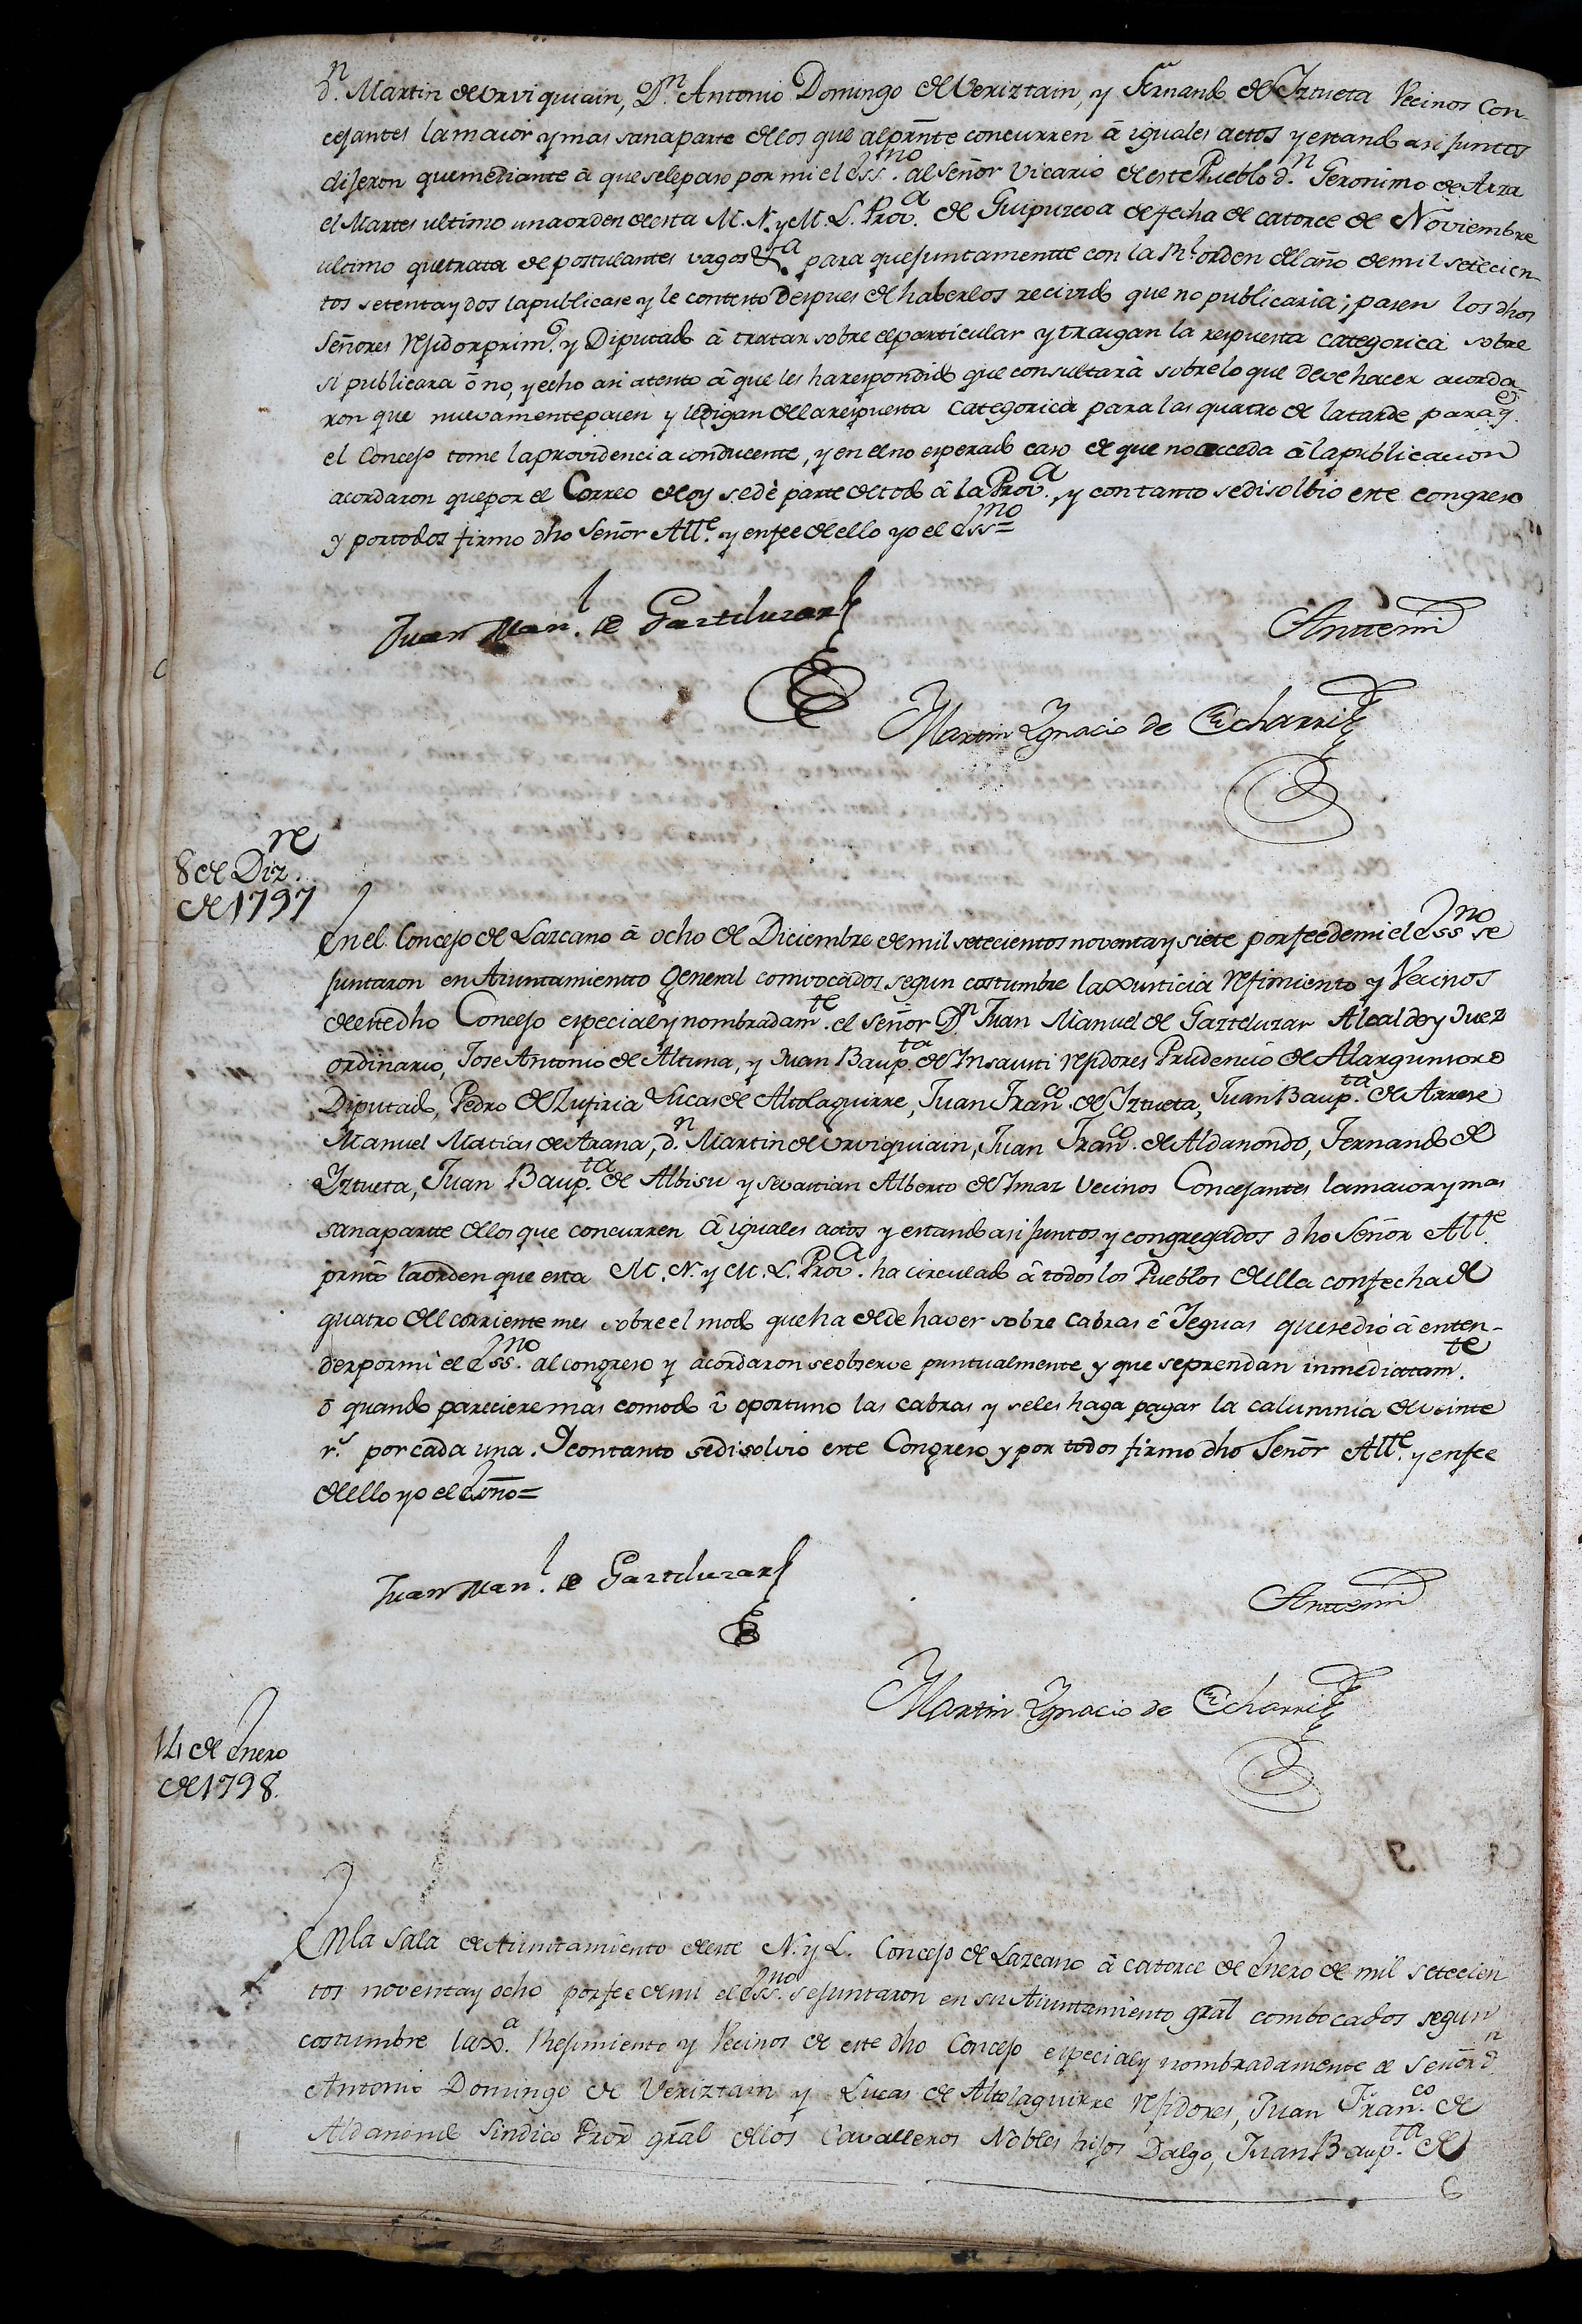 dn. Martin de Urviquiain, Dn. Antonio Domingo de Veriztain, y Fernando de Iztueta Vecinos Con-
cejantes la maior y mas sana parte de los que al preste concurren â iguales actos y estando asi juntos
dijeron que mediante â que se le paso por mi el Essno. al Señor Vicario de este Pueblo dn. Geronimo de Arza
el Martes ultimo una orden de esta M. N. y M. L. Prova. de Guipuzcoa de fecha de catorce de Noviembre
ultimo que trata de postulantes vagos &a para que juntamente con la Rl. orden del año de mil setecien-
tos setenta y dos la publicase y le contesto despues de haberlos recivido que no publicaria; pasen los dhos
Señores Rejidor primo. y Diputado â tratar sobre el particular y traigan la respuesta categorica sobre
si publicara ô no, y echo asi atento â que les ha respondido que consultarà sobre lo que deve hacer acorda-
ron que nuevamente pasen y le digan de la respuesta categorica para las quatro de la tarde para q.e
el Concejo tome la providencia conducente, y en el no esperado caso de que no acceda â la publicacion
acordaron que por el Correo de oy se dè parte de todo â la Prova. y con tanto se disolbio este congreso
y por todos firmo dho Señor Alle. y en fee de ello yo el Essno=
Juan Manl. de Gazteluzar
Ante mi
Martin Ygnacio de Echarri
8 de Dizre.
de 1797
En el Concejo de Lazcano â ocho de Diciembre de mil setecientos noventa y siete por fee de mi el Essno se
juntaron en Aiuntamiento General combocados segun costumbre la Xusticia Rejimiento y Vecinos
de este dho Concejo especial y nombradamte. el señor Dn. Juan Manuel de Gazteluzar Alcalde y Juez
ordinario, Jose Antonio de Altuna, y Juan Baupta. de Insausti Rejidores Prudencio de Alargunsoro
Diputado, Pedro de Zufiria Lucas de Altolaguirre, Juan Franco. de Iztueta, Juan Baupta. de Arrese
Manuel Matias de Arana, dn. Martin de Urviquiain, Juan Franco. de Aldanondo, Fernando de
Iztueta, Juan Baupta. de Albisu y Sevastian Alberto de Imaz Vecinos Concejantes la maior y mas
sana parte de los que concurren â iguales actos y estando asi juntos y congregados dho Señor Alle.
prntô la orden que esta M. N. y M. L. Prova. ha circulado â todos los Pueblos de ella con fecha de
quatro del corriente mes sobre el modo que ha de de haver sobre cabras ê Yeguas que se dio â enten-
der por mi el Essno. al congreso y acordaron se observe puntualmente y que se prendan inmediatamte.
ô quando pareciere mas comodo û oportuno las cabras y se les haga pagar la calumnia de veinte
rs. por cada una. Y con tanto se disolvio este Congreso y por todos firmo dho Señor Alle. y en fee
de ello yo el Esno=
Juan Manl. de Gazteluzar
Ante mi
Martin Ygnacio de Echarri
14 de Enero
de 1798.
En la Sala de Aiuntamiento de este N. y L. Concejo de Lazcano â catorce de Enero de mil setecien
tos noventa y ocho por fee de mi el Essno. se juntaron en su Aiuntamiento gral combocados segun
costumbre la Xa. Rhejimiento y Vecinos de este dho Concejo especial y nombradamente el Señor dn.
Antonio Domingo de Veriztain y Lucas de Altolaguirre Rejidores, Juan Franco. de
Aldanondo Sindico Pror gral de los Cavalleros Nobles hijos Dalgo, Juan Baupta. de